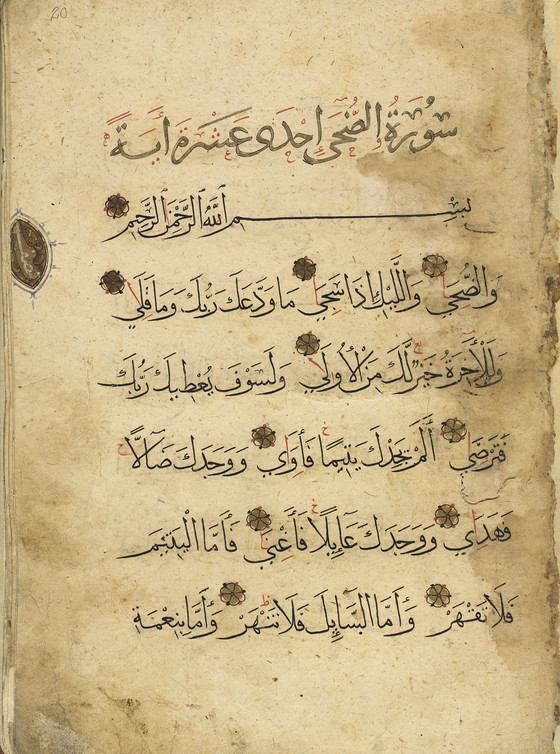 20
سُورَةُ الضُّحَى إِحْدَى عَشْرَةَ آيَةً
بِسْمِ اللَّهِ الرَّحْمَنِ الرَّحِيمِ
وَالضُّحَىٰ وَاللَّيْلِ إِذَا سَجَىٰ مَا وَدَّعَكَ رَبُّكَ وَمَا قَلَىٰ
وَلَلْآخِرَةُ خَيْرٌ لَّكَ مِنَ الْأُولَىٰ وَلَسَوْفَ يُعْطِيكَ رَبُّكَ
فَتَرْضَىٰ أَلَمْ يَجِدْكَ يَتِيمًا فَآوَىٰ وَوَجَدَكَ ضَالًّا
فَهَدَىٰ وَوَجَدَكَ عَائِلًا فَأَغْنَىٰ فَأَمَّا الْيَتِيمَ
فَلَا تَقْهَرْ وَأَمَّا السَّائِلَ فَلَا تَنْهَرْ وَأَمَّا بِنِعْمَةِ